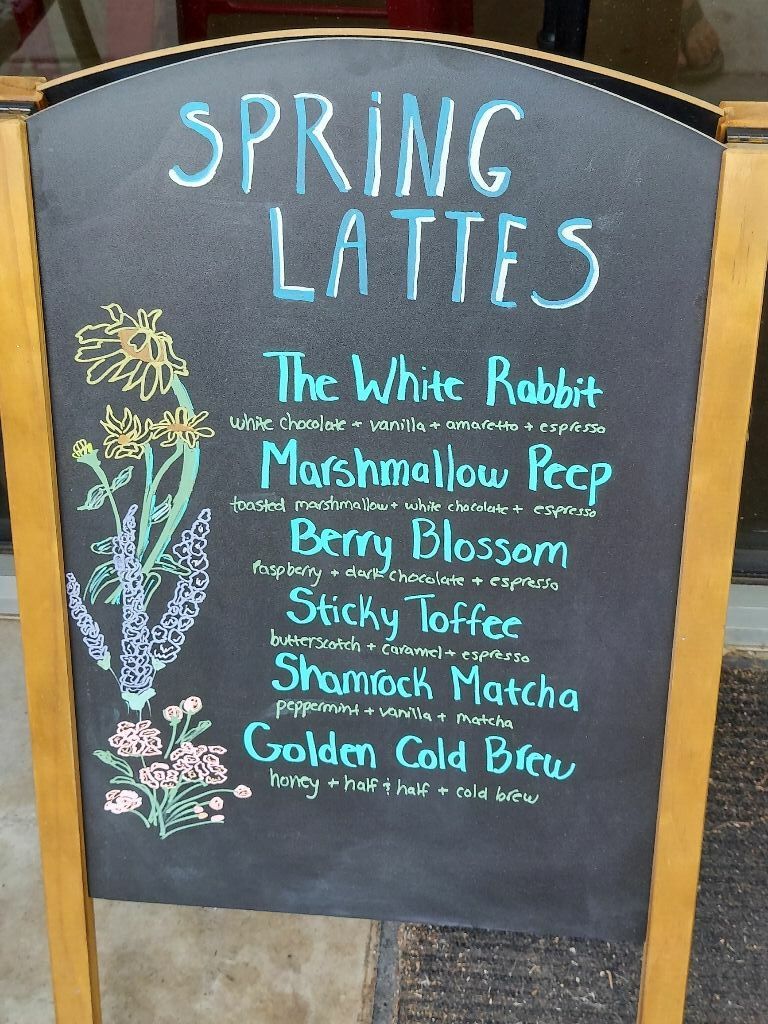 SPRiNG
LATTES
The White Rabbit
white chocolate + vanilla + amaretto + espresso
Marshmallow Peep
toasted marshmallow + white chocolate + espresso
Berry Blossom
Raspberry + dark chocolate + espresso
Sticky Toffee
butterscotch + caramel + espresso
Shamrock Matcha
peppermint + vanilla + matcha
Golden Cold Brew
honey + half & half + cold brew